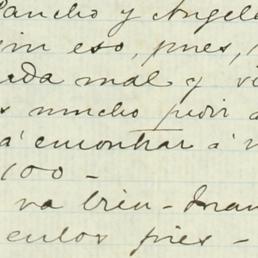 Pancho y Angel
sin eso, pues,
nada mal y vi
s mucho pedir a
á encontrar á
100 -
va bien - Man
en los pies -